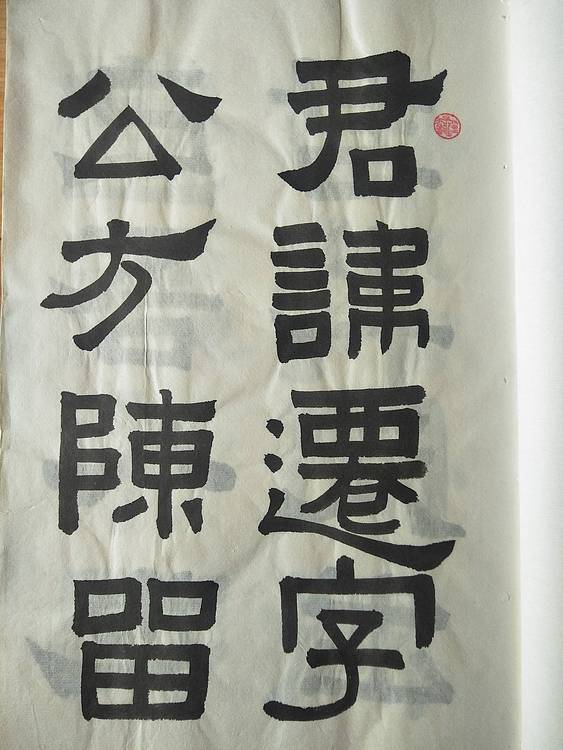 君諱遷字
公方陳留